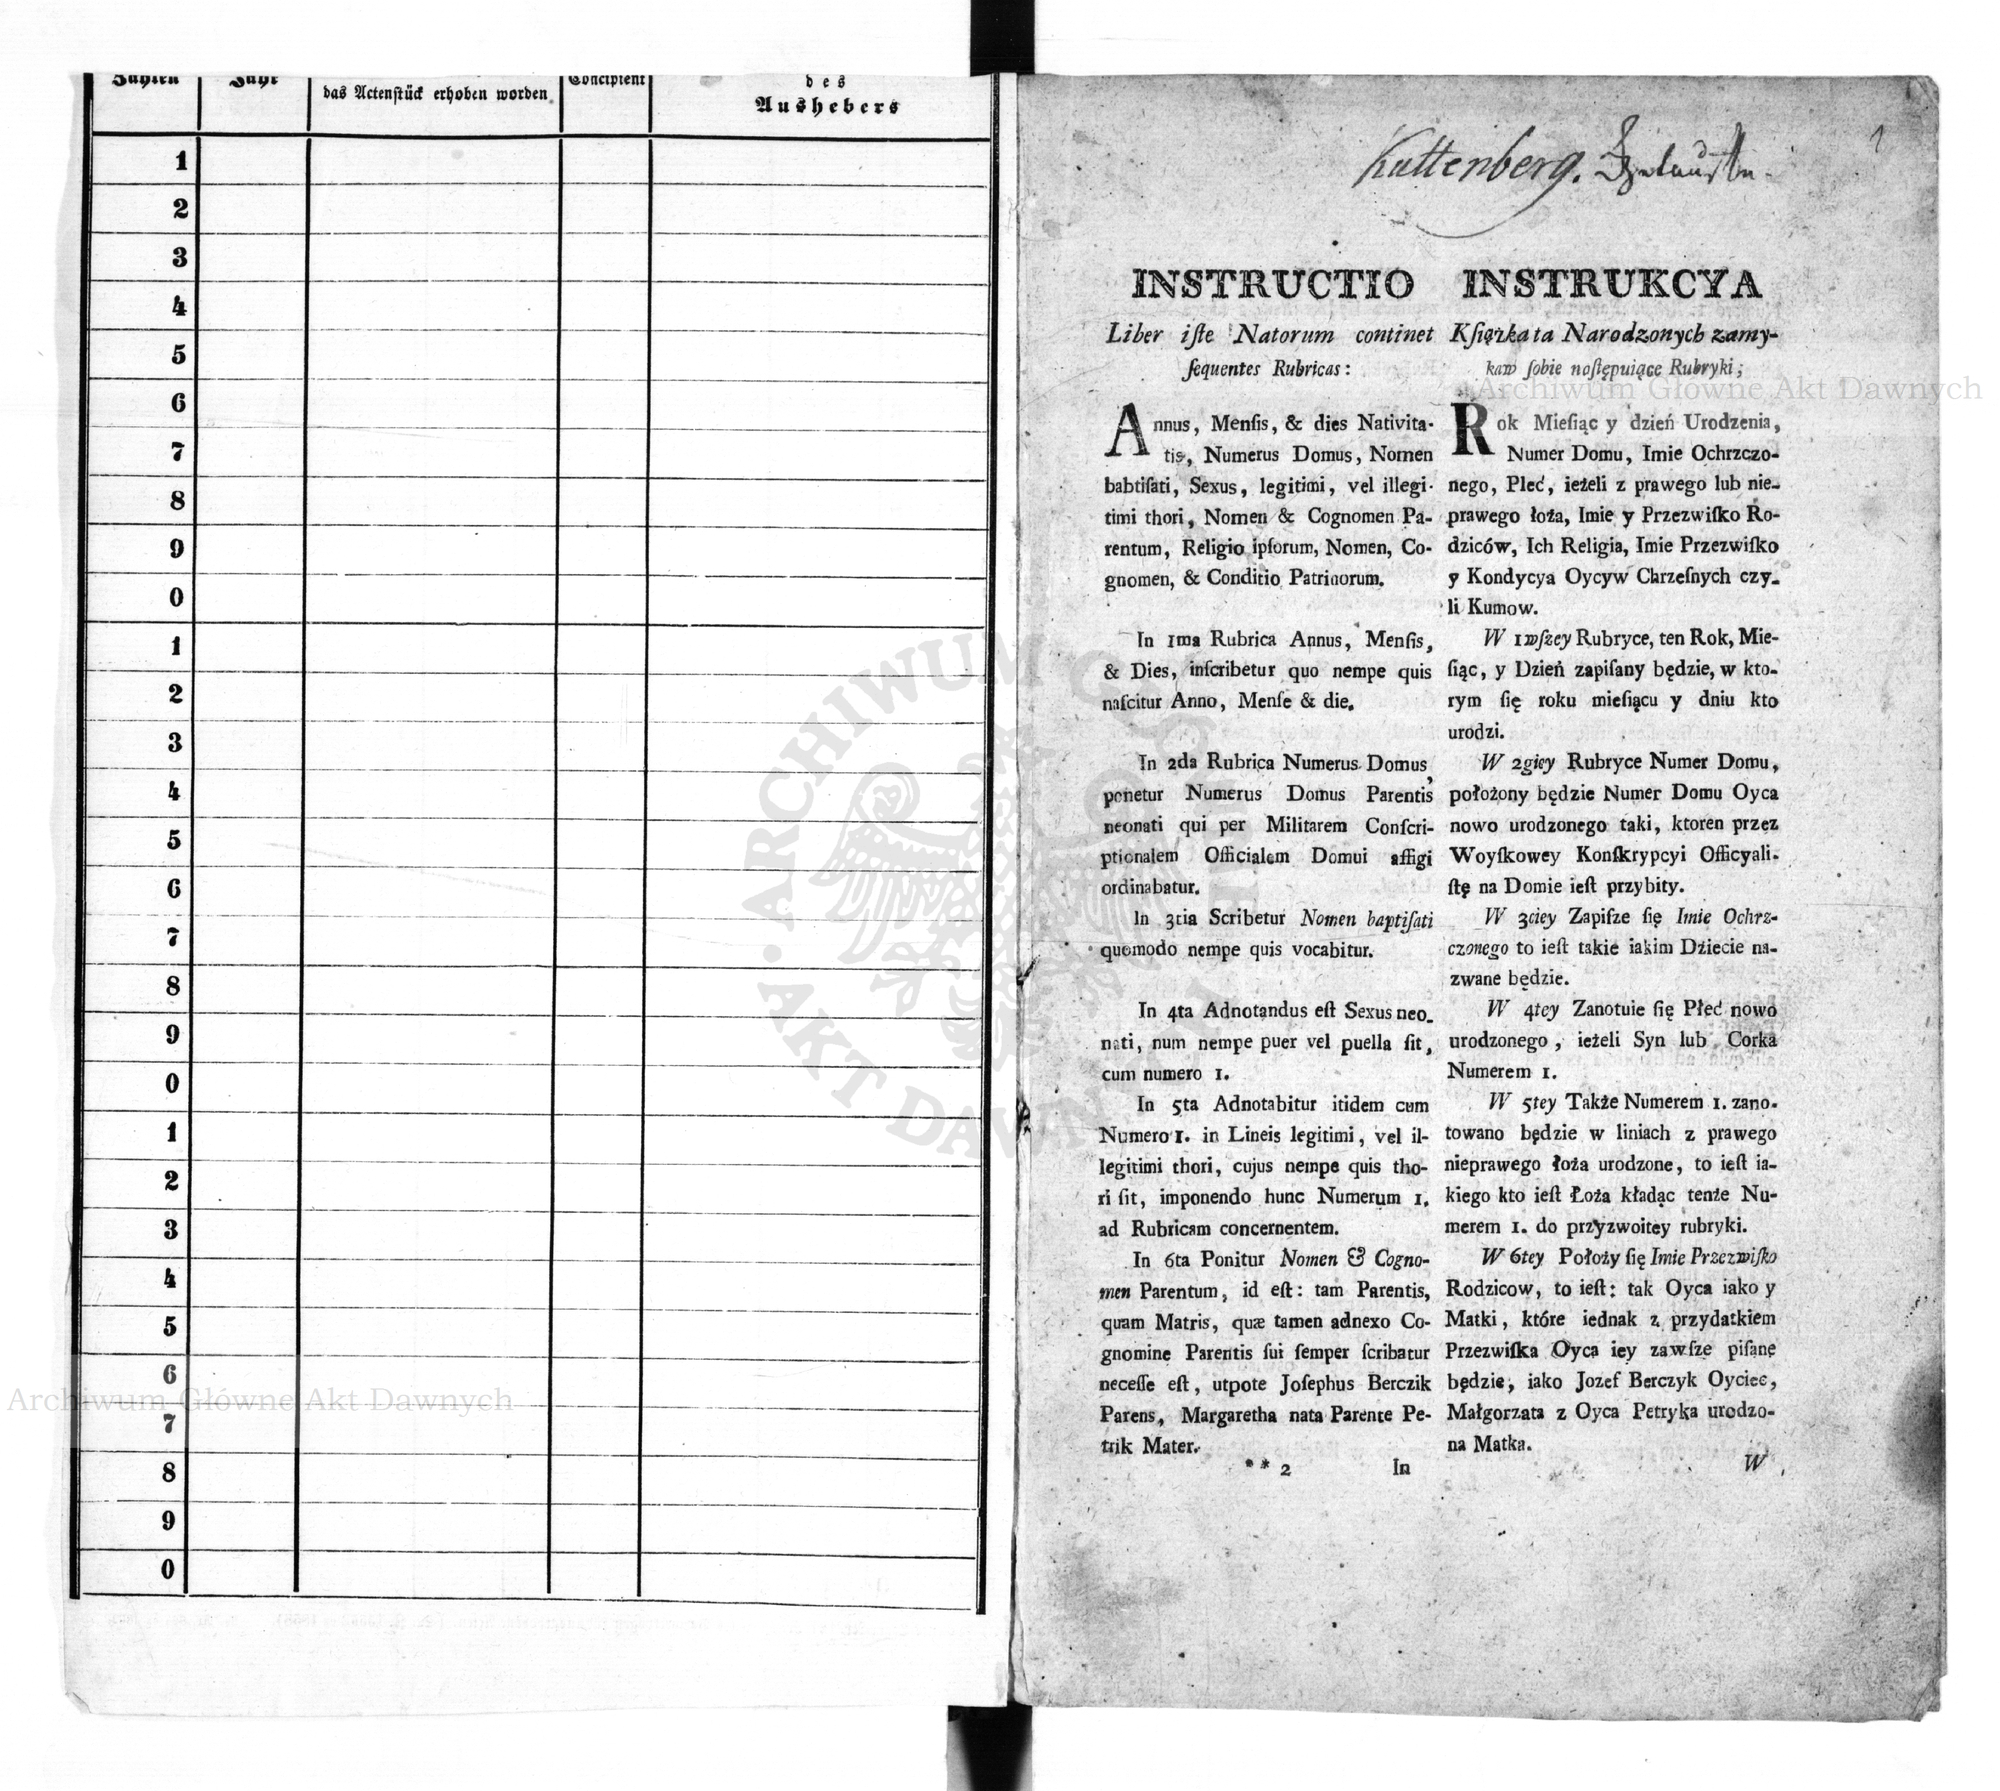 Zahlen
Jahr
das Actenstück erhoben worden
Concipient
des
Aushebers
1
2
3
4
5
6
7
8
9
0
1
2
3
4
5
6
7
8
9
0
1
2
3
4
5
6
7
8
9
0
Kuttenberg.
1
INSTRUCTIO
Liber iſte Natorum continet
ſequentes Rubricas:
Annus, Menſis, & dies Nativita-
tis, Numerus Domus, Nomen
babtiſati, Sexus, legitimi, vel illegi-
timi thori, Nomen & Cognomen Pa-
rentum, Religio ipſorum, Nomen, Co-
gnomen, & Conditio Patrinorum.
In 1ma Rubrica Annus, Menſis,
& Dies, inſcribetur quo nempe quis
naſcitur Anno, Menſe & die.
In 2da Rubrica Numerus Domus,
ponetur Numerus Domus Parentis
neonati qui per Militarem Conſcri-
ptionalem Officialem Domui affigi
ordinabatur.
In 3tia Scribetur Nomen baptiſati
quomodo nempe quis vocabitur.
In 4ta Adnotandus eſt Sexus neo-
nati, num nempe puer vel puella ſit,
cum numero 1.
In 5ta Adnotabitur itidem cum
Numero 1. in Lineis legitimi, vel il-
legitimi thori, cujus nempe quis tho-
ri ſit, imponendo hunc Numerum 1.
ad Rubricam concernentem.
In 6ta Ponitur Nomen & Cogno-
men Parentum, id eſt: tam Parentis,
quam Matris, quæ tamen adnexo Co-
gnomine Parentis ſui ſemper ſcribatur
neceſſe eſt, utpote Joſephus Berczik
Parens, Margaretha nata Parente Pe-
trik Mater.
** 2
In
INSTRUKCYA
Kſiążka ta Narodzonych zamy-
kaw ſobie noſtępuiące Rubryki;
Rok Mieſiąc y dzień Urodzenia,
Numer Domu, Imie Ochrzczo-
nego, Pleć, ieżeli z prawego lub nie-
prawego łoża, Imie y Przezwiſko Ro-
dziców, Ich Religia, Imie Przezwiſko
y Kondycya Oycyw Chrzeſnych czy-
li Kumow.
W 1wſzey Rubryce, ten Rok, Mie-
ſiąc, y Dzień zapiſany będzie, w kto-
rym ſię roku mieſiącu y dniu kto
urodzi.
W 2giey Rubryce Numer Domu,
położony będzie Numer Domu Oyca
nowo urodzonego taki, ktoren przez
Woyſkowey Konſkrypcyi Officyali-
ſtę na Domie ieſt przybity.
W 3ciey Zapiſze ſię Imie Ochrz-
czonego to ieſt takie iakim Dziecie na-
zwane będzie.
W 4tey Zanotuie ſię Płeć nowo
urodzonego, ieżeli Syn lub Corka
Numerem 1.
W 5tey Także Numerem 1. zano-
towano będzie w liniach z prawego
nieprawego łoża urodzone, to ieſt ia-
kiego kto ieſt Łoża kładąc tenże Nu-
merem 1. do przyzwoitey rubryki.
W 6tey Położy ſię Imie Przezwiſko
Rodzicow, to ieſt: tak Oyca iako y
Matki, które iednak z przydatkiem
Przezwiſka Oyca iey zawſze piſane
będzie, iako Jozef Berczyk Oyciec,
Małgorzata z Oyca Petryka urodzo-
na Matka.
W
Archiwum Główne Akt Dawnych
Archiwum Główne Akt Dawnych